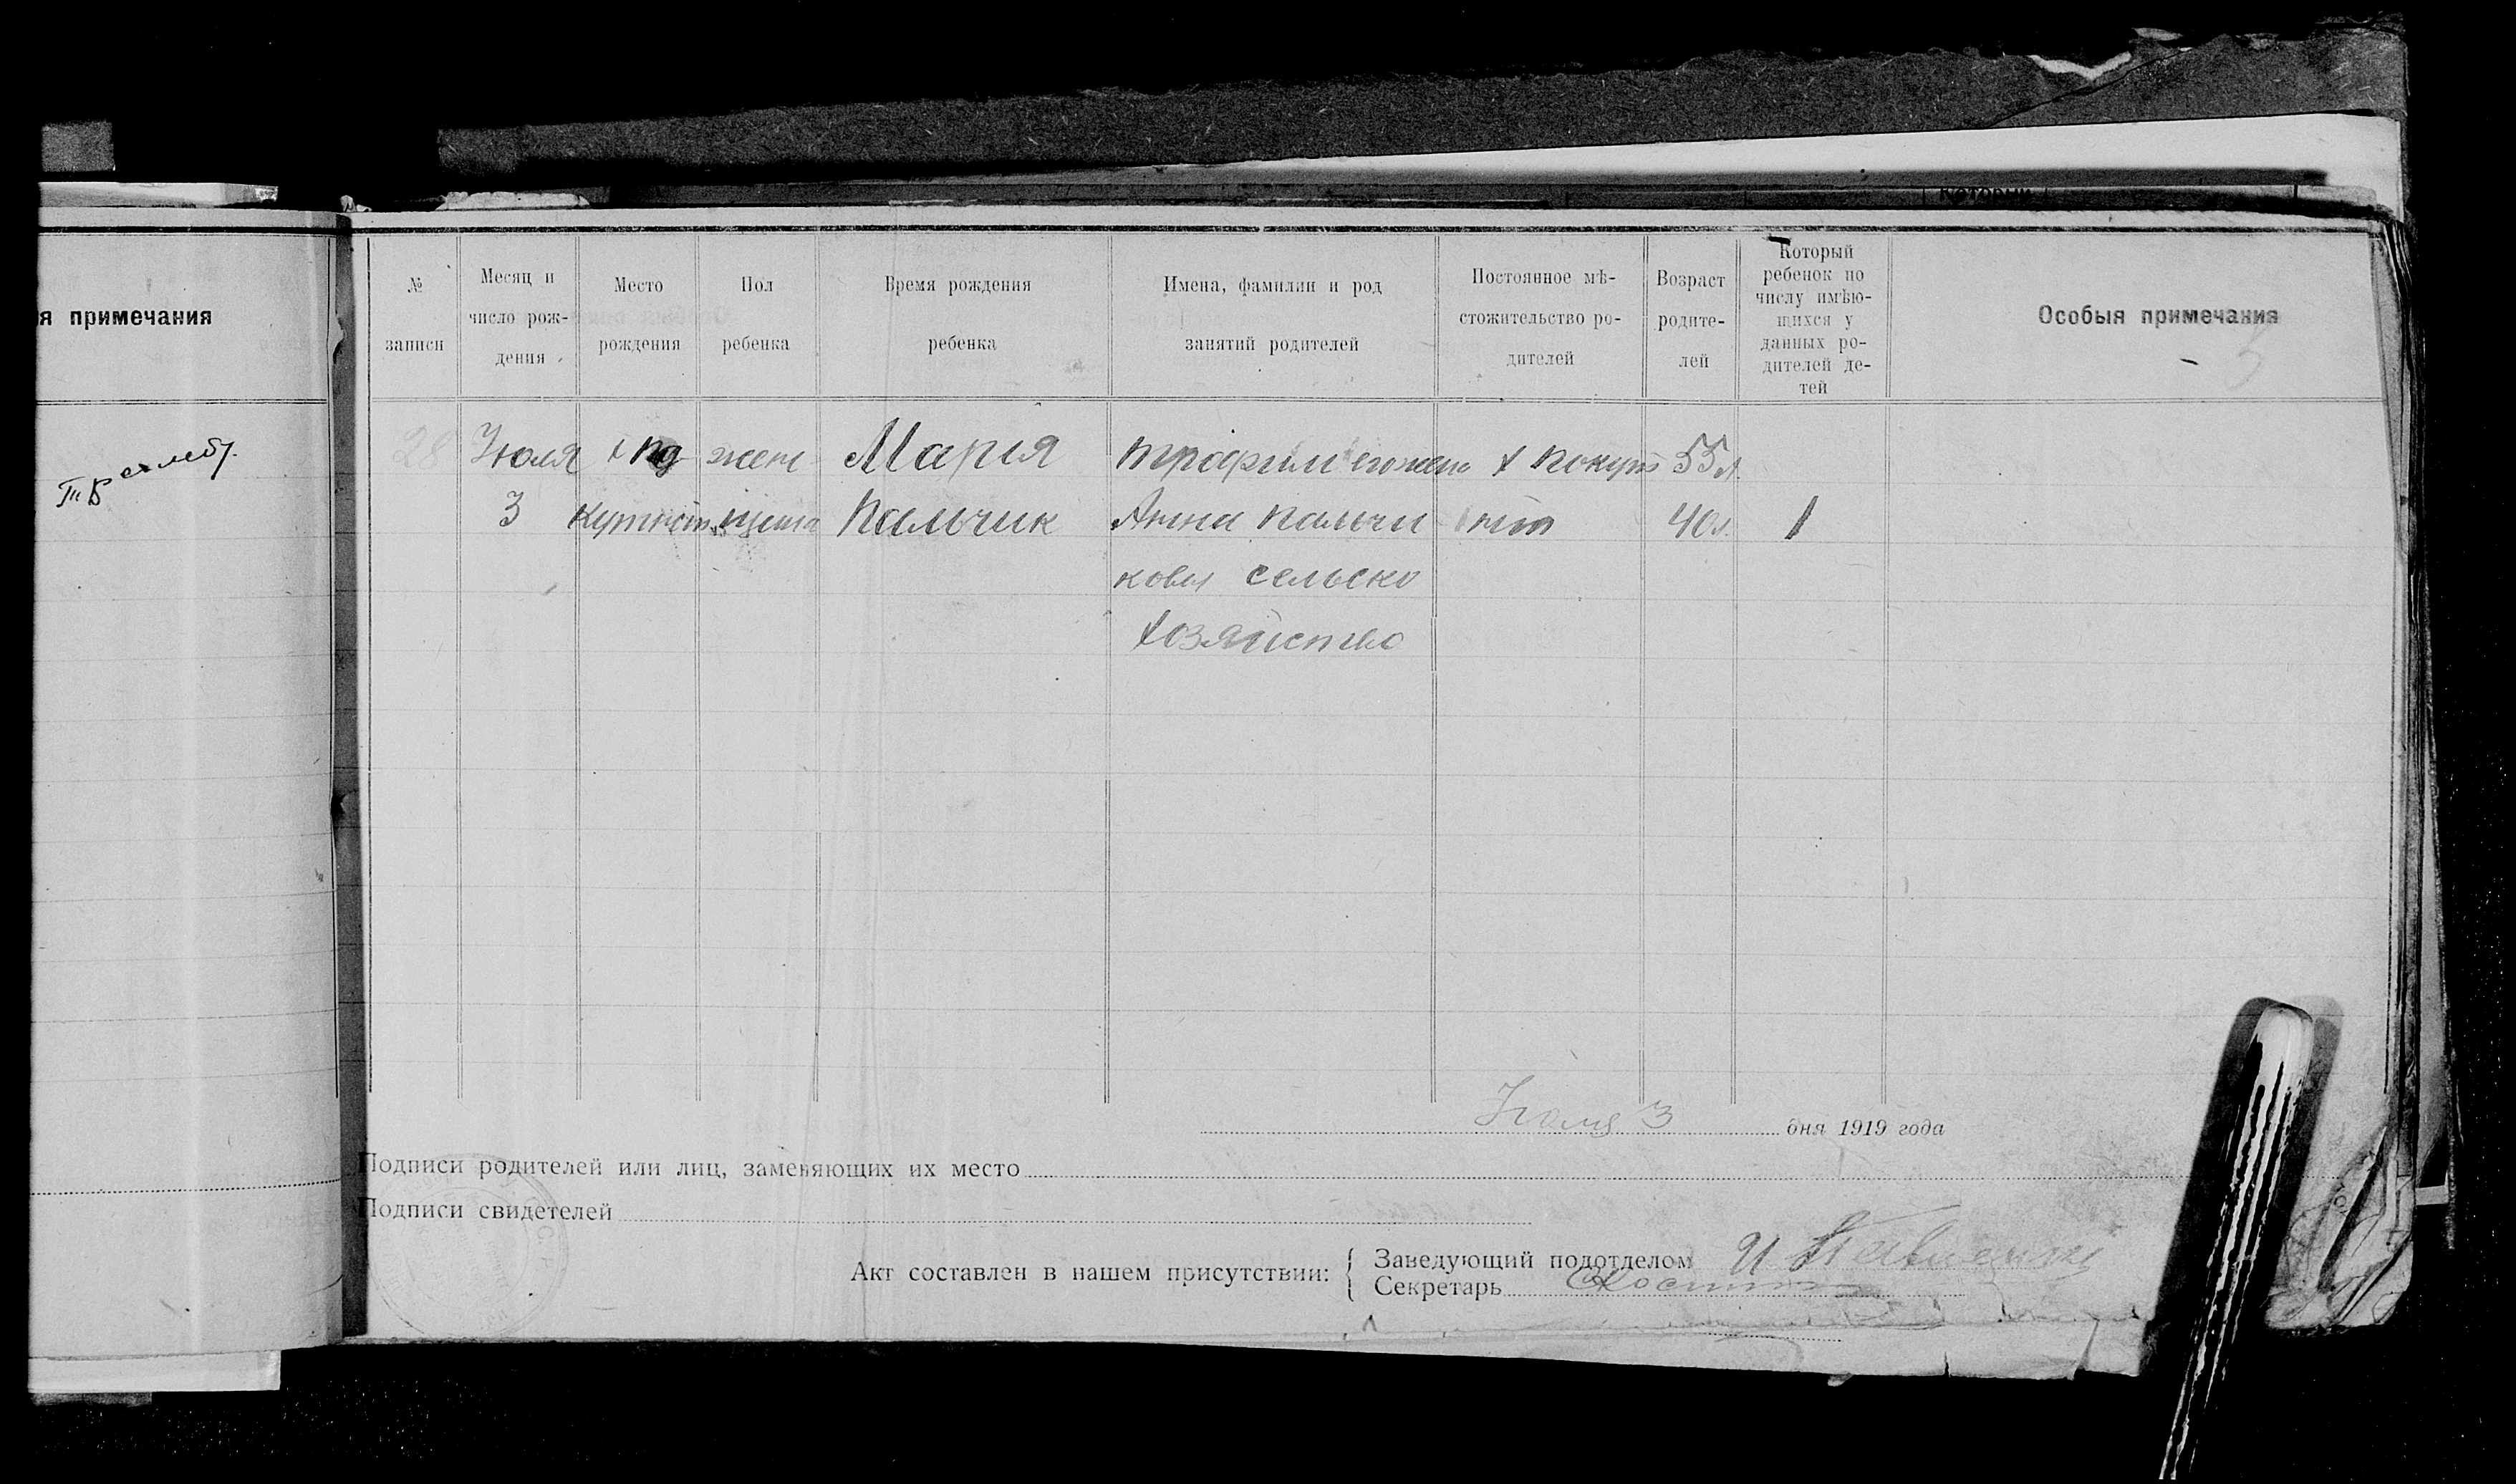 я примечания
№ записи
Месяц и число рож-дения
Место рождения
Пол ребенка
Время рождения ребенка
Имена, фамилии и род занятий родителей
Постоянное мѣ-стожительство ро-дителей
Возраст родите-лей
Который ребенок по числу имѣю-щихся у данных ро-дителей де-тей
Особыя примечания
28 Июля жен Марія трофим х 55 л.
3 Пальчик Анна Пальчи 40 л. 1
кова сельско
хозяйство
Июля 3 дня 1919 года
Подписи родителей или лиц, заменяющих их место
Подписи свидетелей
Акт составлен в нашем присутствии:
Заведующий подотделом И
Секретарь